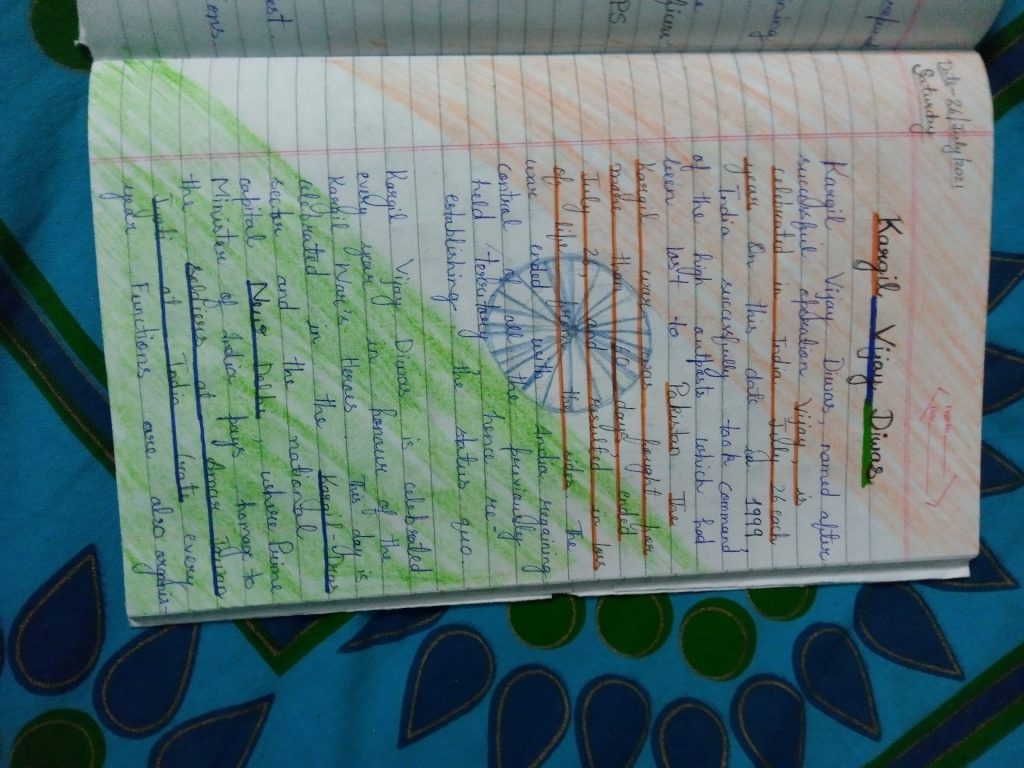 Date - 26/July/2021
Saturday
Kargil Vijay Diwas
Kargil Vijay Diwas, named after
successful operation Vijay, is
celebrated in India July 26 each
year On this date id 1999,
India successfully took command
of the high outposts which had
been lost to Pakistan The
Kargil war was fought for
more than 60 days ended
July 26 and resulted in loss
of life from the sides. The
war ended with India regaining
control of all the previously
held territory, hence re-
establishing the status quo.
Kargil Vijay Diwas is celebrated
every year in honour of the
Kargil War's Heroes. This day is
celebrated in the Kargil-Dras
sector and the national
capital New Delhi, where Prime
Minister of India pays homage to
the soldiers at Amar Jawan
Jyoti at India Gate every
year Functions are also organis-